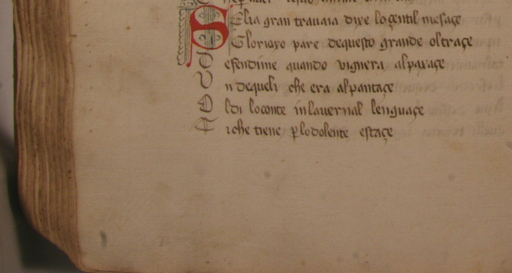 S elia gran travaia dixe lo gentil mesaçe
G lorioxo pare de questo grande oltraçe
D efendime quando vignera al paxaçe
V n de queli che era al pantaçe
O ldi lo conte in lavernal lenguaçe
T i che tiene p lo dolente estaçe